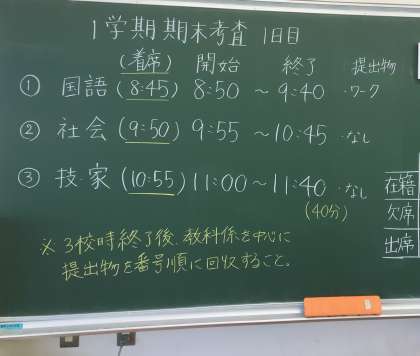 1学期 期末考査 1日目
(着席) 開始 終了 提出物
① 国語 (8:45) 8:50 ～ 9:40 ・ワーク
② 社会 (9:50) 9:55 ～ 10:45 ・なし
③ 技・家 (10:55) 11:00 ～ 11:40 ・なし
(40分)
※ 3校時終了後、教科係を中心に
提出物を番号順に回収すること。
在籍
欠席
出席